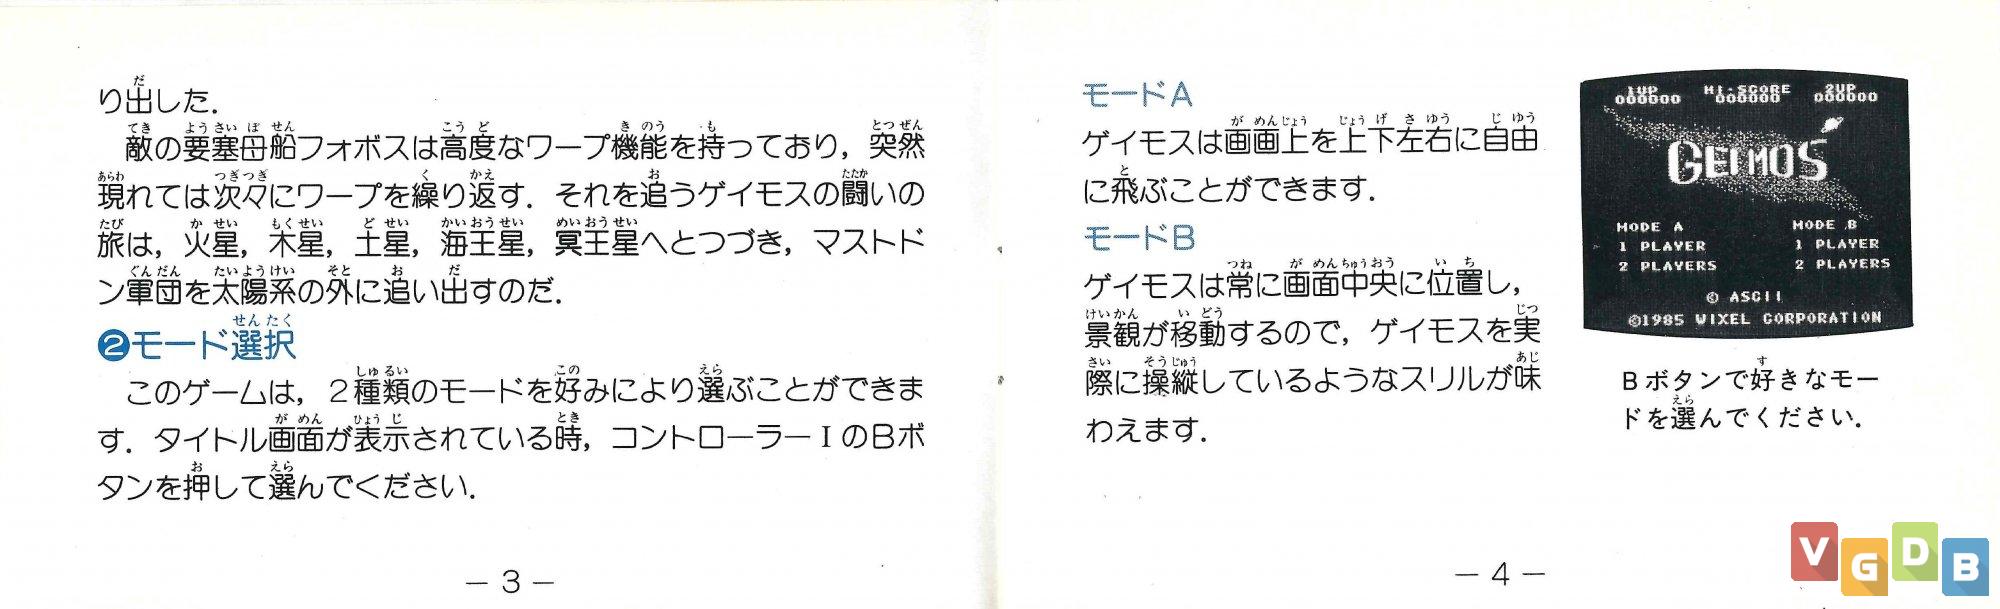 り出した．
敵の要塞母船フォボスは高度なワープ機能を持っており，突然
現れては次々にワープを繰り返す．それを追うゲイモスの闘いの
旅は，火星，木星，土星，海王星，冥王星へとつづき，マストド
ン軍団を太陽系の外に追い出すのだ．
❷モード選択
このゲームは，２種類のモードを好みにより選ぶことができま
す．タイトル画面が表示されている時，コントローラーⅠのBボ
タンを押して選んでください．
－3－
モードA
ゲイモスは画面上を上下左右に自由
に飛ぶことができます．
モードB
ゲイモスは常に画面中央に位置し，
景観が移動するので，ゲイモスを実
際に操縦しているようなスリルが味
わえます．
1UP HI-SCORE 2UP
000000 000000 000000
GEIMOS
MODE A MODE B
1 PLAYER 1 PLAYER
2 PLAYERS 2 PLAYERS
© ASCII
©1985 WIXEL CORPORATION
Bボタンで好きなモー
ドを選んでください．
－4－
VGDB